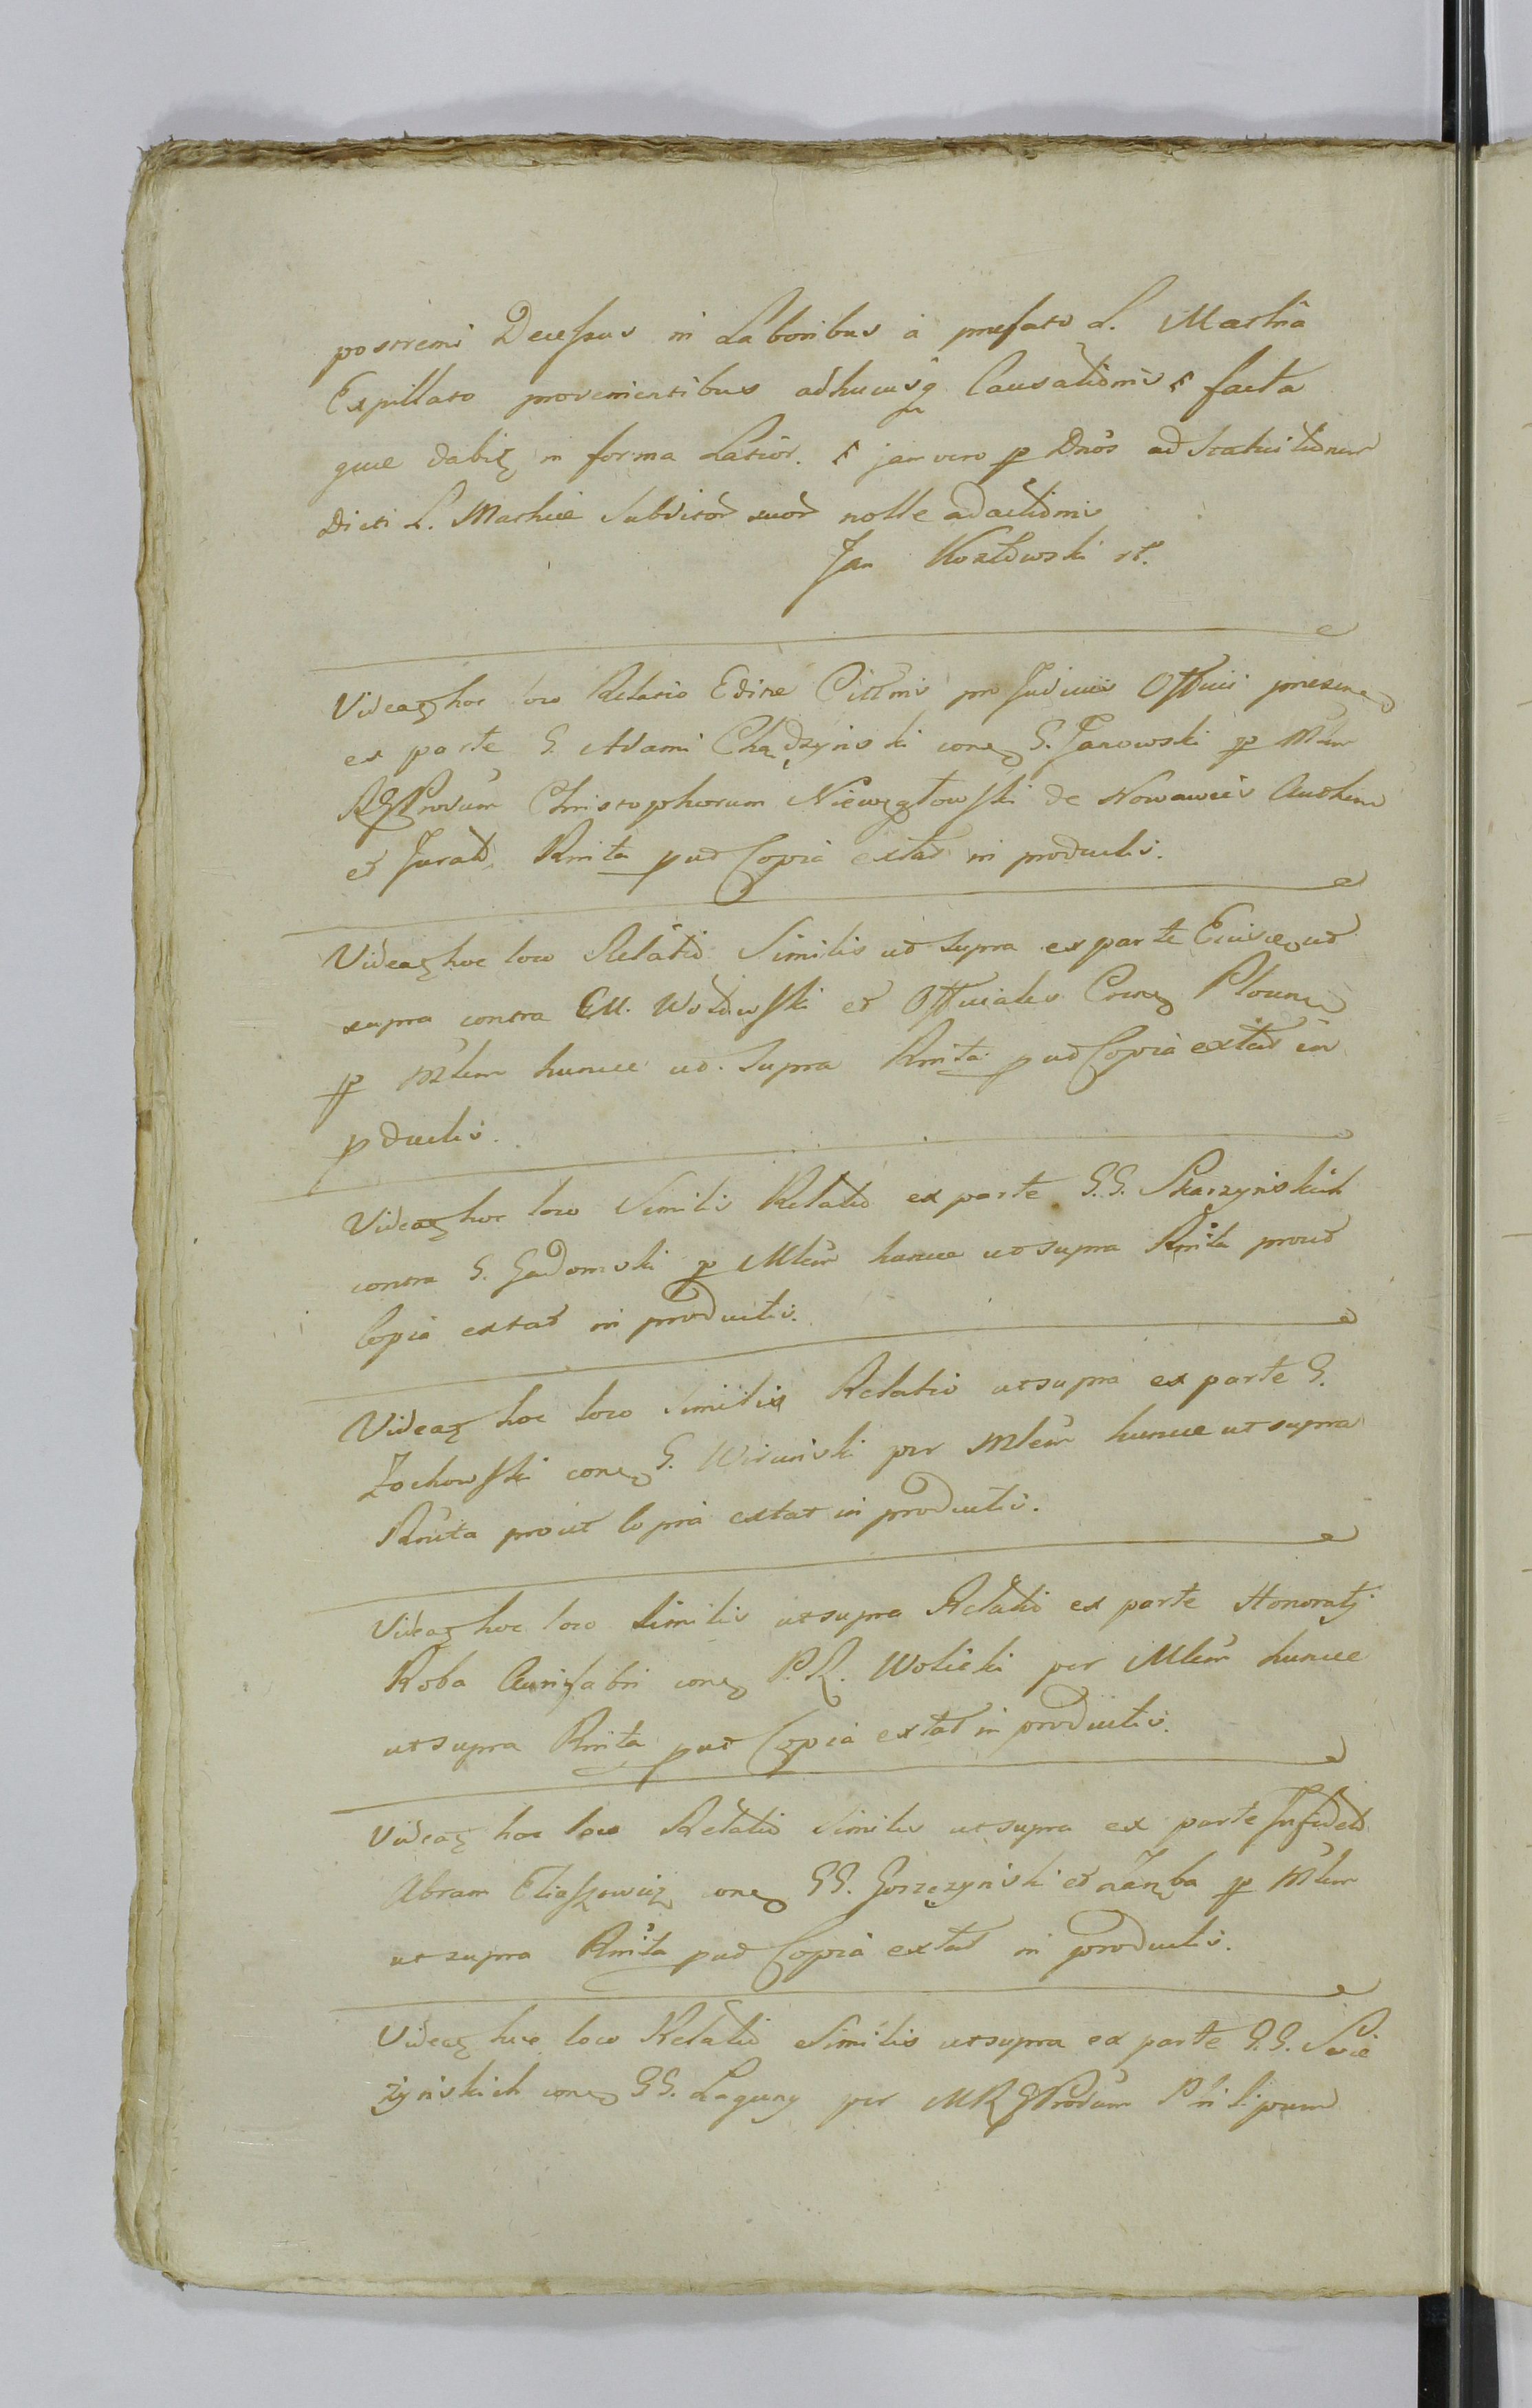 postremi Decessus in Laboribus à prefato L. Mathia
Expillato provenientibus adhucusq Causationis facta
que dabit in forma Latior. jam vero p Dnos ad Statuitionem
Dicti L. Mathie Subditor suor nolle adactionis
Jan Kozłowski
Videat hoc loco Relatio Edite Cittnis pro Judiciis Officii presen
ex parte G. Adami Chądzyński con G. Janowski p Mlem
RGProvum Christophorum Niewzgłowski de Nowawieś Authen
et Jurat Rnita put Copia extat in productis.
Videat hoc loco Relatio Similis ut supra ex parte Eiusd ut
supra contra M. Wołowski et Officiales Cone Plocne
p Mlem hunce ut supra Rnita put Copia extat in
pductis.
Videat hoc loco Similis Relatio ex parte G.G. Skarzyńskich
contra G. Gadomski p Mlem hunce ut supra Rnita prout
Copia extat in productis.
Videat hoc loco Similis Relatio ut supra ex parte G.
Zochowski con G. per Mlem hunce ut supra
Rnita prout Copia extat in productis.
Videat hoc loco Similis ut supra Relatio ex parte Honoratj
Koba Aurifabri con P.R. Wolicki per Mlem hunce
ut supra Rnita put Copia extat in productis.
Videat hoc loco Relatio Similis ut supra ex parte Infidel
Abram Eliaszowicz con GG. Gorzczyński et Zaręba p Mlem
ut supra Rnita put Copia extat in productis.
Videat hoc loco Relatio Similis ut supra ex parte G.G. Swie
żyńskich con GG. Laguny per MRGProvum Philipum